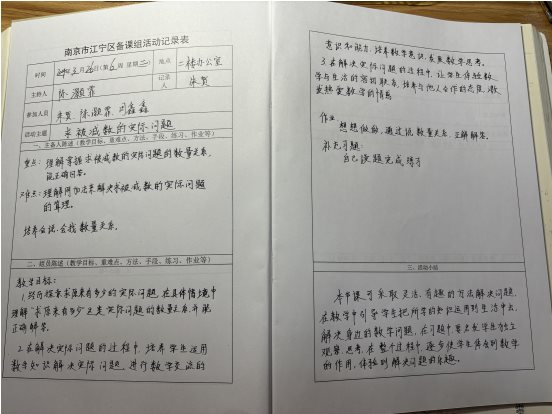 南京市江宁区备课组活动记录表
时间 3月26日(第6周 星期三) 地点 二楼办公室
主持人 陈灏霏 记录人 朱贺
参加人员 朱贺、陈灏霏、司鑫鑫
活动主题 求被减数的实际问题
一、主备人陈述(教学目标、重难点、方法、手段、练习、作业等)
重点：理解掌握求被减数的实际问题的数量关系,
能正确口答。
难点：理解用加法来解决求被减数的实际问题
的算理。
培养会说、会找数量关系。
二、组员陈述(教学目标、重难点、方法、手段、练习、作业等)
教学目标：
1.经历探索求原来有多少的实际问题,在具体情境中
理解"求原来有多少"这类实际问题的数量关系,并能
正确解答。
2.在解决实际问题的过程中,培养学生运用
数学知识解决实际问题,进行数学交流的
意识和能力,培养数学意识,发展数学思考。
3.在解决实际问题的过程中,让学生体验数
学与生活的密切联系,培养与他人合作的态度,激
发热爱数学的情感
作业
想想做做,通过说数量关系,正确解答。
补充习题：
自己读题完成练习
三、活动小结
本节课可采取灵活、有趣的方法解决问题,
在教学中引导学生把所学的知识运用到生活中去,
解决身边的数学问题,在习题中重点让学生独立
观察、思考,在整个过程中,逐步使学生体会到数学
的作用,体验到解决问题的乐趣。